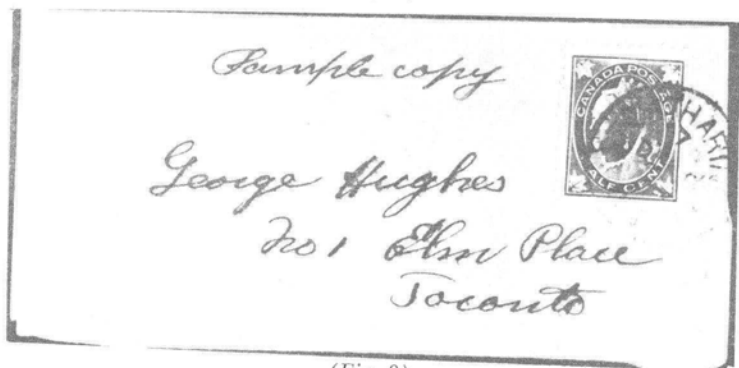 Sample copy
CANADA POSTAGE
HALF CENT
George Hughes
No 1 Elm Place
Toronto